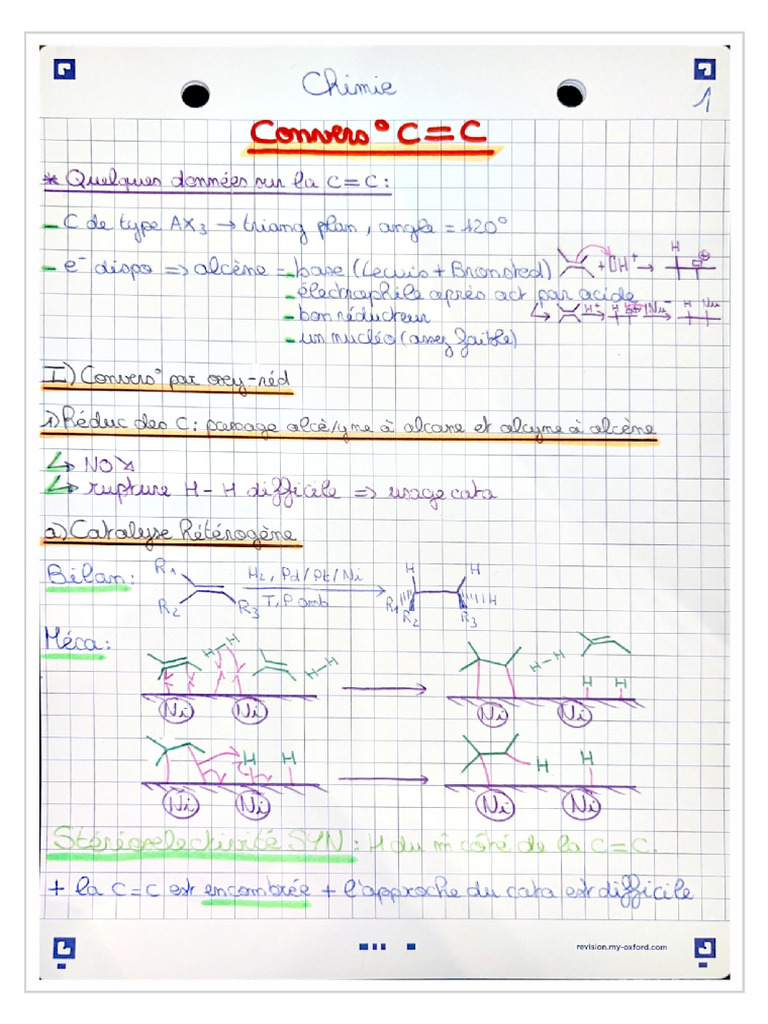 Chimie
1
Convers° C=C
* Quelques données sur la C=C :
- C de type AX3 → triang plan, angle = 120°
- e- dispo => alcène = - base (Lewis + Bronsted)
+ OH+ →
H
⊕
- électrophile après act par acide
- bon réducteur
H+ → H Nu- → H Nu
- un nucléo (assez faible)
I) Convers° par oxy-réd
i) Réduc des C : passage alcè/yne à alcane et alcyne à alcène
↳ NO ↘
↳ rupture H-H difficile => usage cata
a) Catalyse hétérogène
Bilan :
R1 R2 R3
H2, Pd/Pt/Ni
T, P amb
H H
R1 R2 H R3
Méca :
H-H H-H
Ni Ni
H-H H H
Ni Ni
H H
Ni Ni
H H
Ni Ni
Stéréosélectivité SYN : H du m̂ côté de la C=C.
+ la C=C est encombrée + l'approche du cata est difficile
revision.my-oxford.com